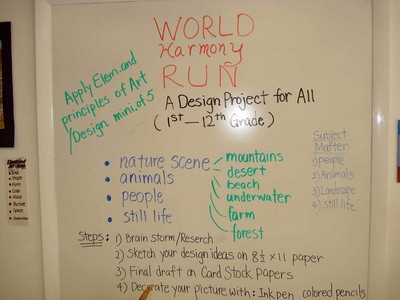 WORLD
Harmony
RUN
Apply Elem.and
principles of Art
/Design mini.of 5
A Design Project for All
(1st—12th Grade)
• nature scene
• animals
• people
• still life
mountains
desert
beach
underwater
farm
forest
Subject
Matter
1) people
2) Animals
3) Landscape
4) still life
Steps: 1) Brain storm/Reserch
2) Sketch your design ideas on 8½ x 11 paper
3) Final draft on Card Stock papers
4) Decorate your picture with: Ink pen, colored pencils